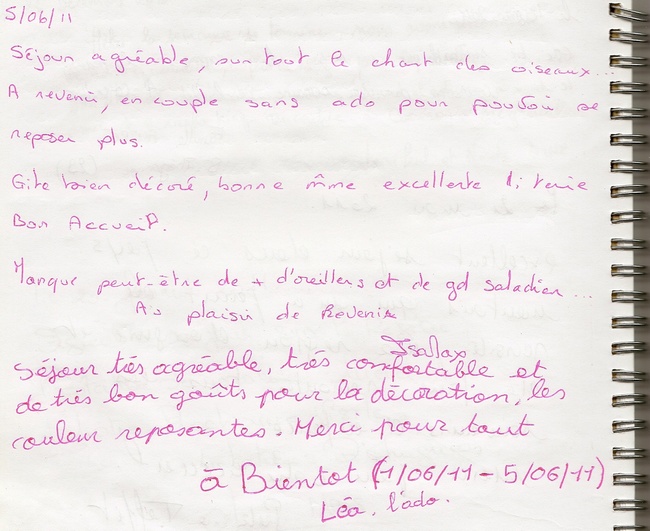 5/06/11
Séjour agréable, surtout le chant des oiseaux...
A revenir, en couple sans ado pour pouvoir se
reposer plus.
Gite bien décoré, bonne mme excellente literie
Bon Accueil.
Manque peut-être de + d'oreillers et de gd saladier...
Au plaisir de Revenir
Séjour très agréable, très confortable et
de très bon goûts pour la décoration, les
couleur reposantes. Merci pour tout
à Bientot (1/06/11 - 5/06/11)
Léa, l'ado.